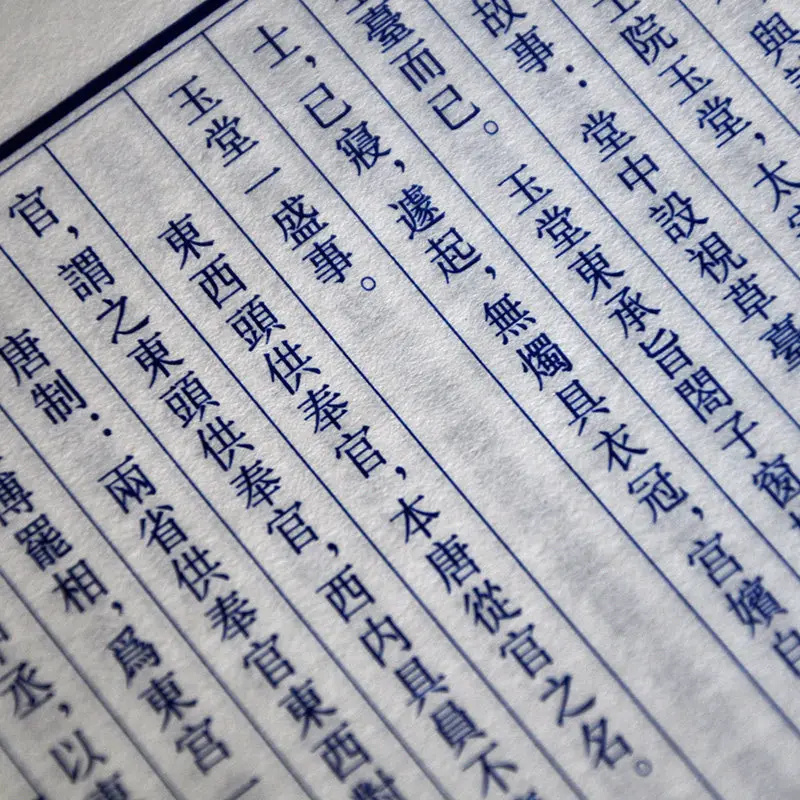 與
院玉堂，太
故事：堂中設視草臺
臺而已。玉堂東承旨閤子窗
士，已寢，遽起，無燭具衣冠，宮嬪自
玉堂一盛事。
東西頭供奉官，本唐從官之名。
官，謂之東頭供奉官，西内具員不
唐制：兩省供奉官東西對
博罷相，爲東宮一
丞，以